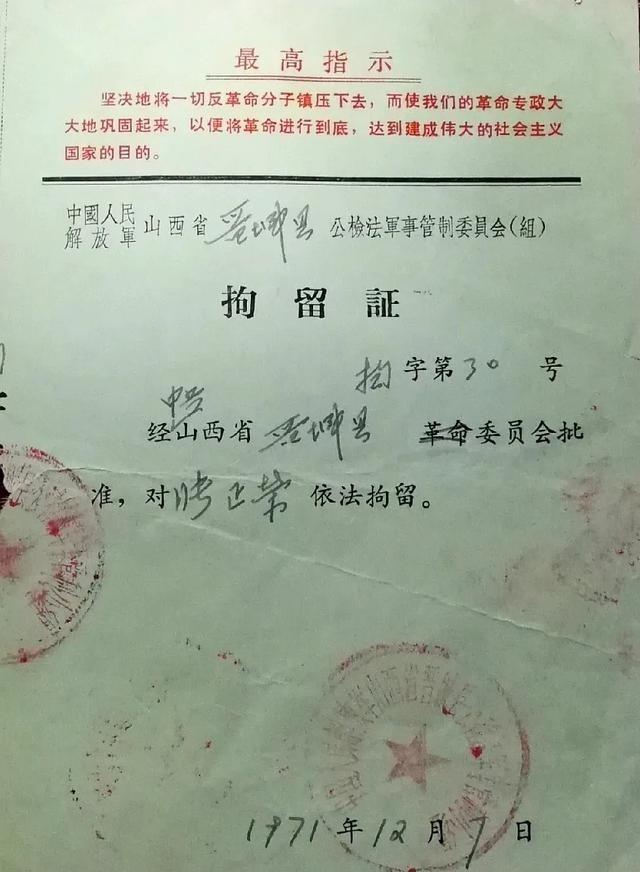 最高指示
坚决地将一切反革命分子镇压下去，而使我们的革命专政大
大地巩固起来，以便将革命进行到底，达到建成伟大的社会主义
国家的目的。
中國人民
解放軍 山西省 晋城县 公檢法軍事管制委員会(組)
拘留証
拘字第30号
中共
经山西省晋城县革命委员会批
准，对张正荣依法拘留。
1971年12月7日